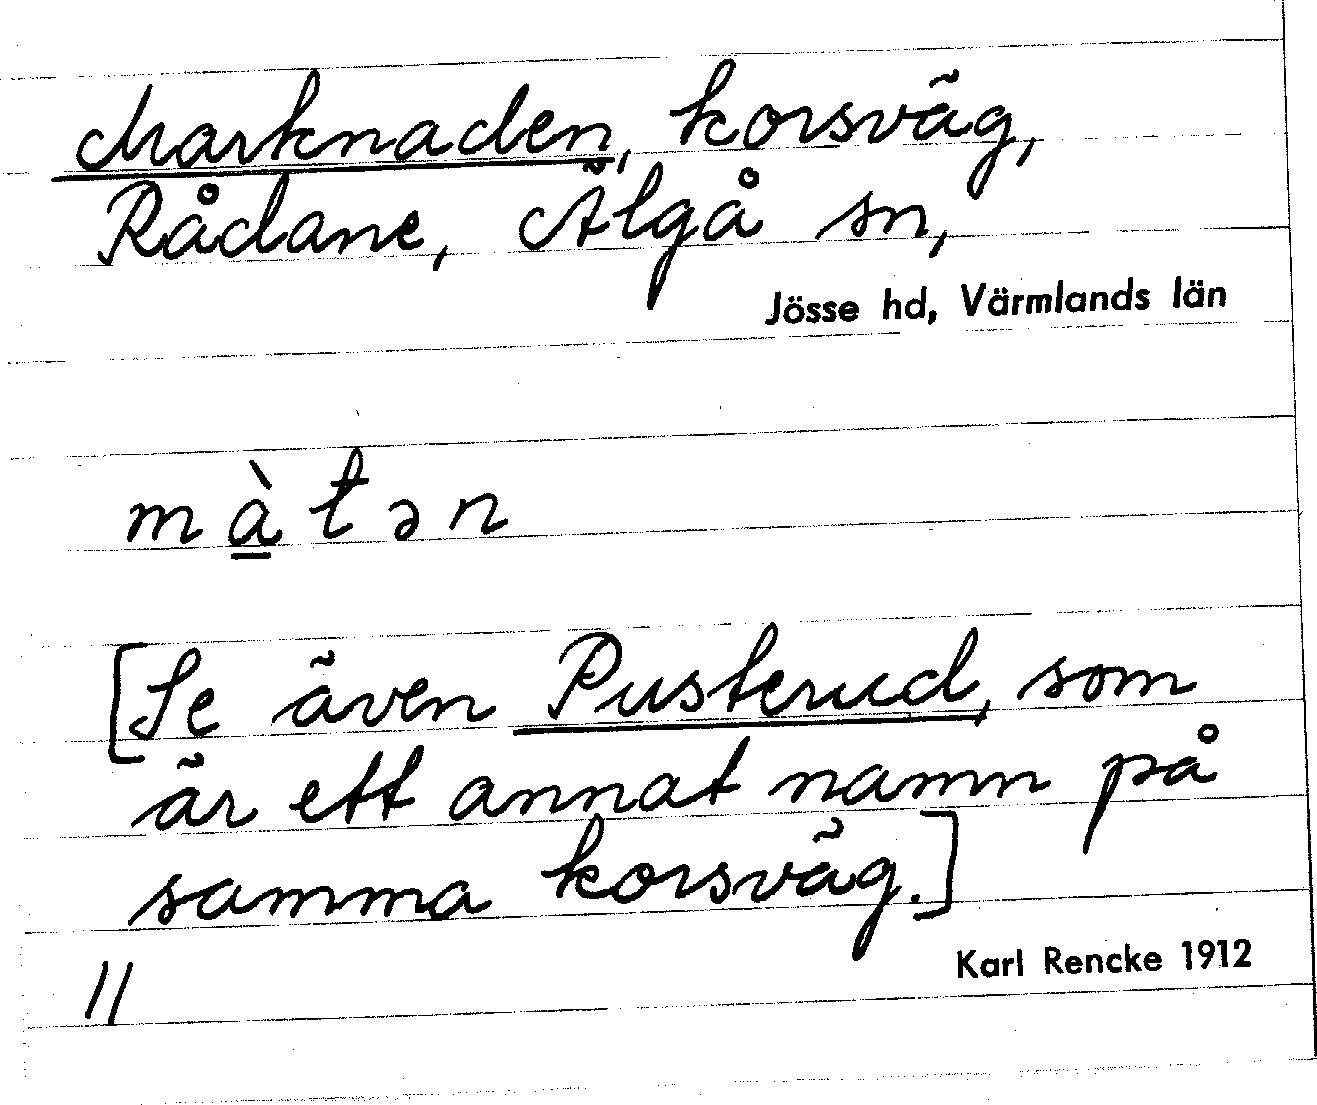 Marknaden, korsväg,
Rådane, Älgå sn,
Jösse hd, Värmlands län
màtən
[Se även Pusterud, som
är ett annat namn på
samma korsväg.]
Karl Rencke 1912
//